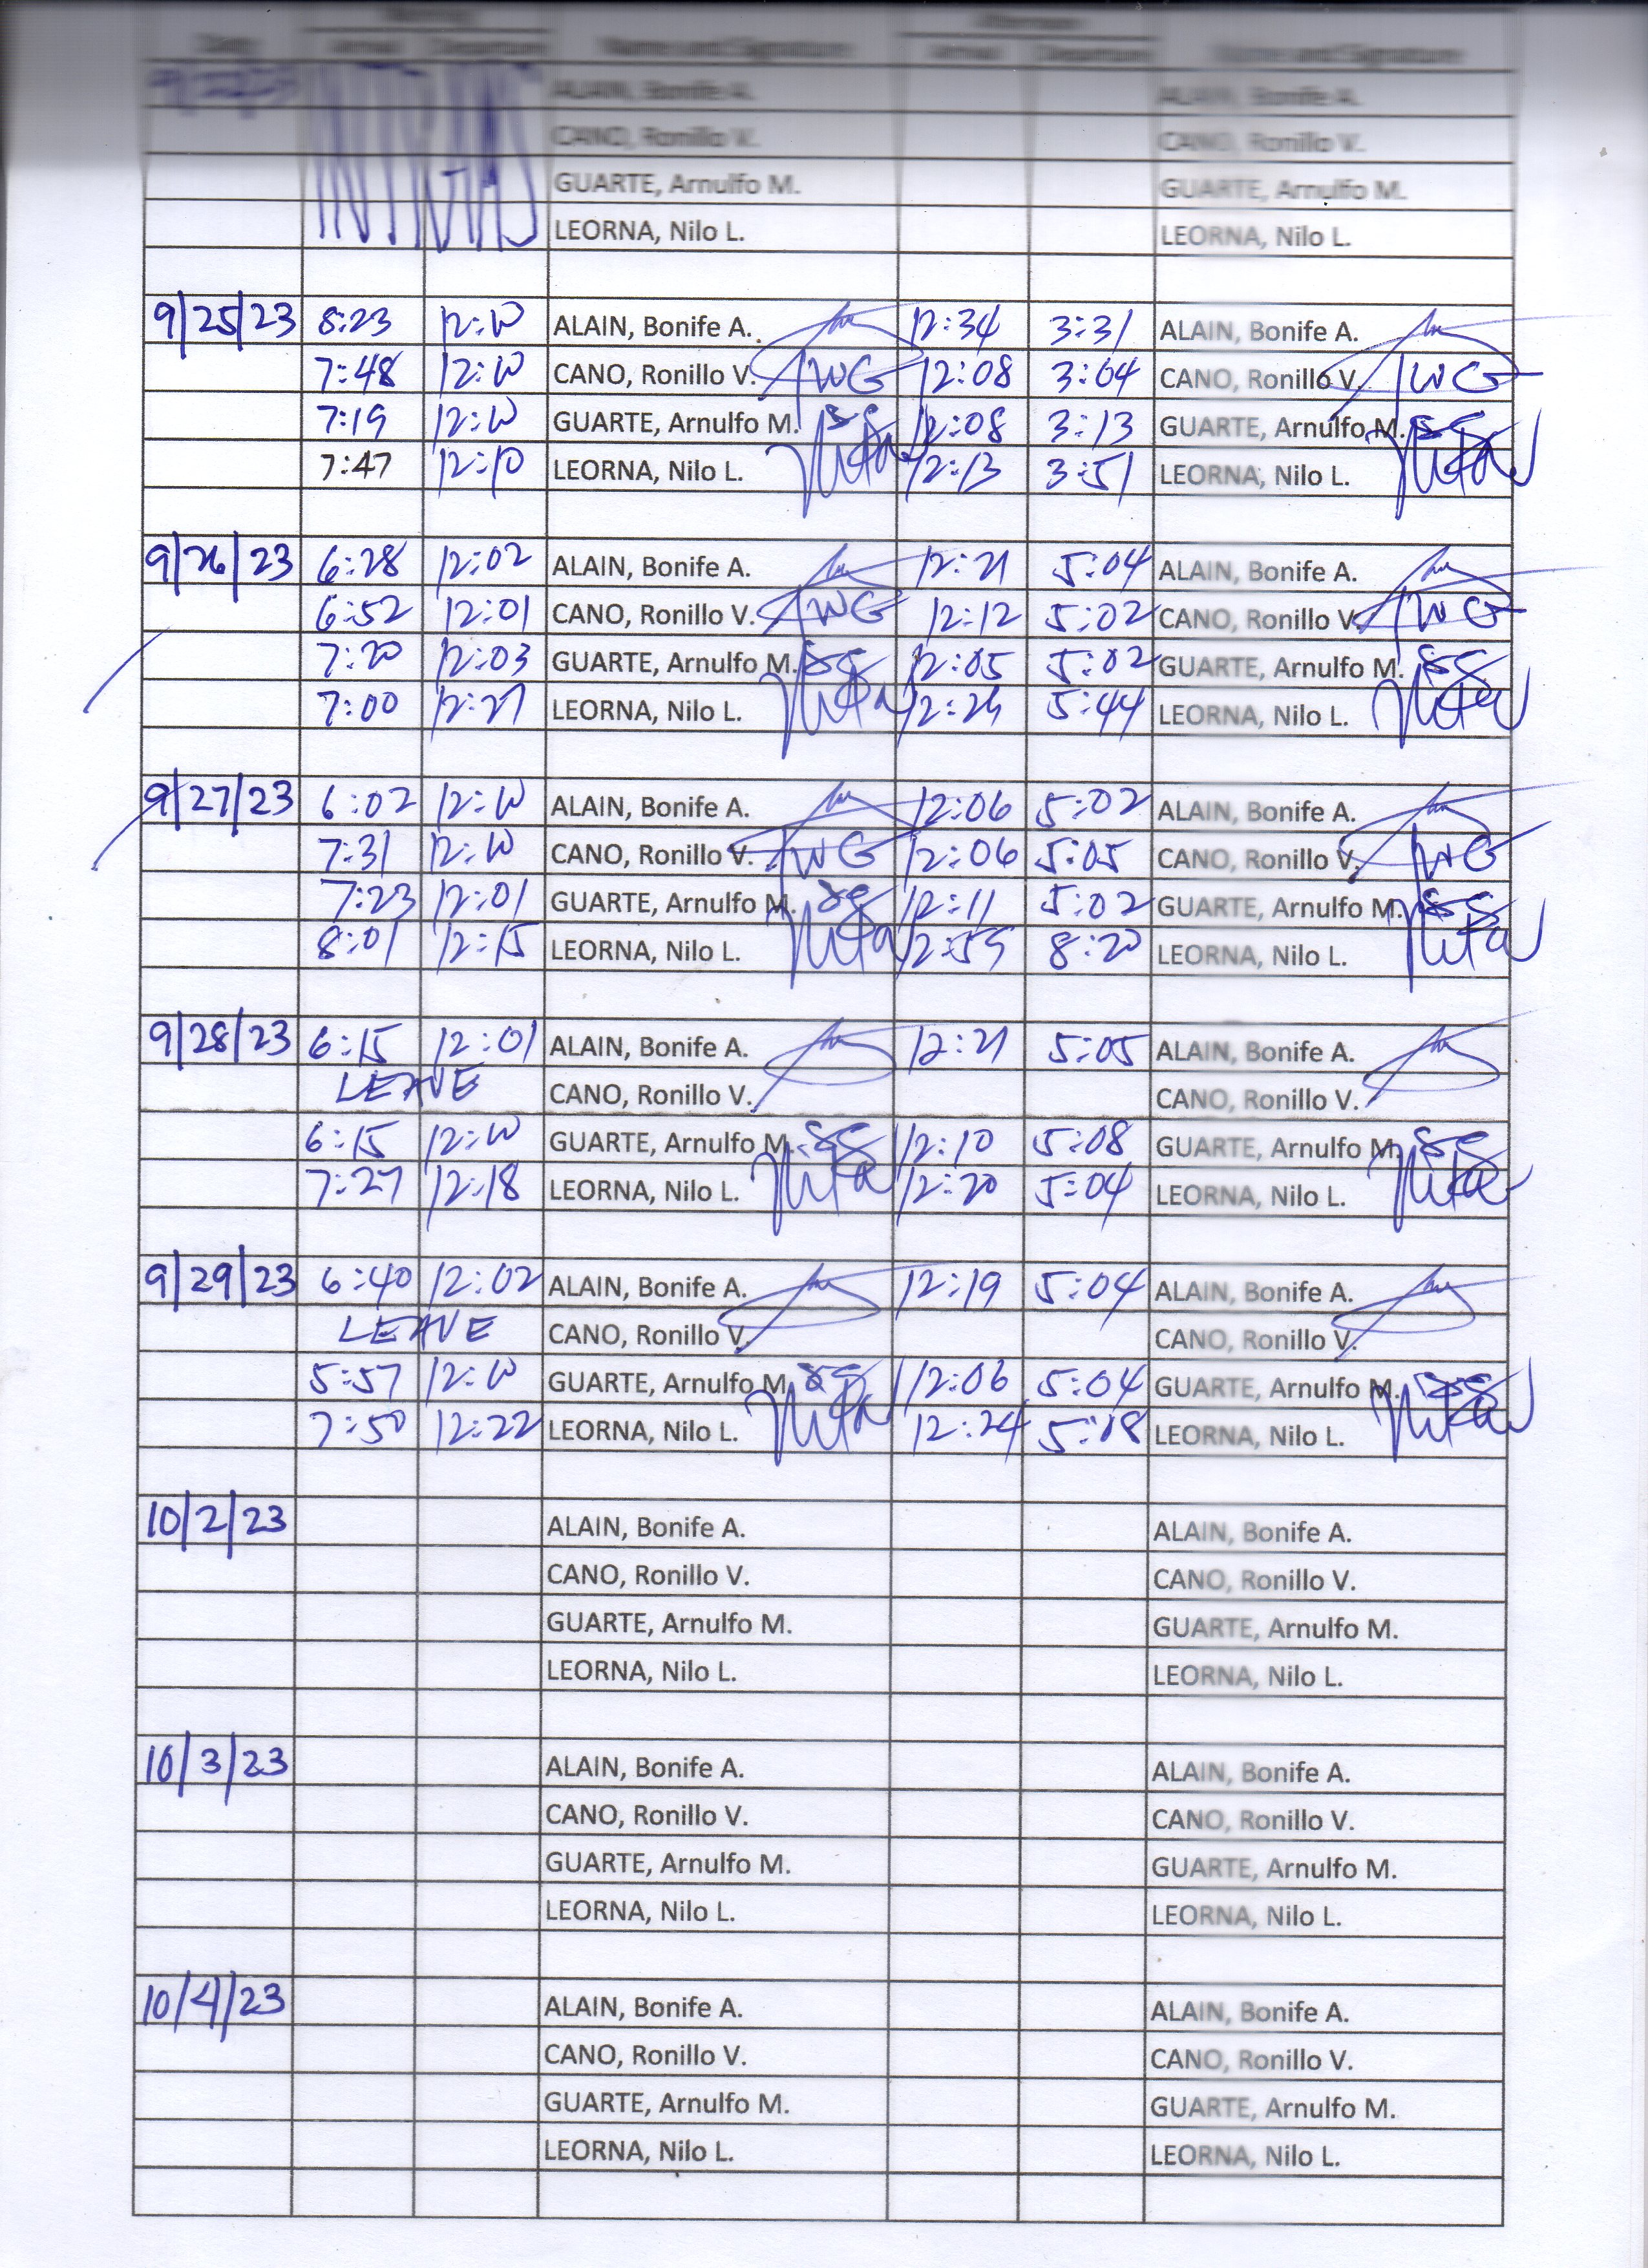 Morning Afternoon
Date Arrival Departure Name and Signature Arrival Departure Name and Signature
9/22/23 ALAIN, Bonife A. ALAIN, Bonife A.
CANO, Ronillo V. CANO, Ronillo V.
GUARTE, Arnulfo M. GUARTE, Arnulfo M.
LEORNA, Nilo L. LEORNA, Nilo L.
9/25/23 8:23 12:00 ALAIN, Bonife A. 12:34 3:31 ALAIN, Bonife A.
7:48 12:00 CANO, Ronillo V. 12:08 3:04 CANO, Ronillo V.
7:19 12:00 GUARTE, Arnulfo M. 12:08 3:13 GUARTE, Arnulfo M.
7:47 12:10 LEORNA, Nilo L. 12:13 3:51 LEORNA, Nilo L.
9/26/23 6:28 12:02 ALAIN, Bonife A. 12:21 5:04 ALAIN, Bonife A.
6:52 12:01 CANO, Ronillo V. 12:12 5:02 CANO, Ronillo V.
7:20 12:03 GUARTE, Arnulfo M. 12:05 5:02 GUARTE, Arnulfo M.
7:00 12:27 LEORNA, Nilo L. 5:44 LEORNA, Nilo L.
9/27/23 6:02 12:00 ALAIN, Bonife A. 12:06 5:02 ALAIN, Bonife A.
7:31 12:00 CANO, Ronillo V. 12:06 5:05 CANO, Ronillo V.
7:23 12:01 GUARTE, Arnulfo M. 12:11 5:02 GUARTE, Arnulfo M.
8:01 12:15 LEORNA, Nilo L. 8:20 LEORNA, Nilo L.
9/28/23 6:15 12:01 ALAIN, Bonife A. 12:21 5:05 ALAIN, Bonife A.
LEAVE CANO, Ronillo V. CANO, Ronillo V.
6:15 12:00 GUARTE, Arnulfo M. 12:10 5:08 GUARTE, Arnulfo M.
7:27 12:18 LEORNA, Nilo L. 12:20 5:04 LEORNA, Nilo L.
9/29/23 6:40 12:02 ALAIN, Bonife A. 12:19 5:04 ALAIN, Bonife A.
LEAVE CANO, Ronillo V. CANO, Ronillo V.
5:57 12:00 GUARTE, Arnulfo M. 12:06 5:04 GUARTE, Arnulfo M.
7:50 12:22 LEORNA, Nilo L. 12:24 5:08 LEORNA, Nilo L.
10/2/23 ALAIN, Bonife A. ALAIN, Bonife A.
CANO, Ronillo V. CANO, Ronillo V.
GUARTE, Arnulfo M. GUARTE, Arnulfo M.
LEORNA, Nilo L. LEORNA, Nilo L.
10/3/23 ALAIN, Bonife A. ALAIN, Bonife A.
CANO, Ronillo V. CANO, Ronillo V.
GUARTE, Arnulfo M. GUARTE, Arnulfo M.
LEORNA, Nilo L. LEORNA, Nilo L.
10/4/23 ALAIN, Bonife A. ALAIN, Bonife A.
CANO, Ronillo V. CANO, Ronillo V.
GUARTE, Arnulfo M. GUARTE, Arnulfo M.
LEORNA, Nilo L. LEORNA, Nilo L.